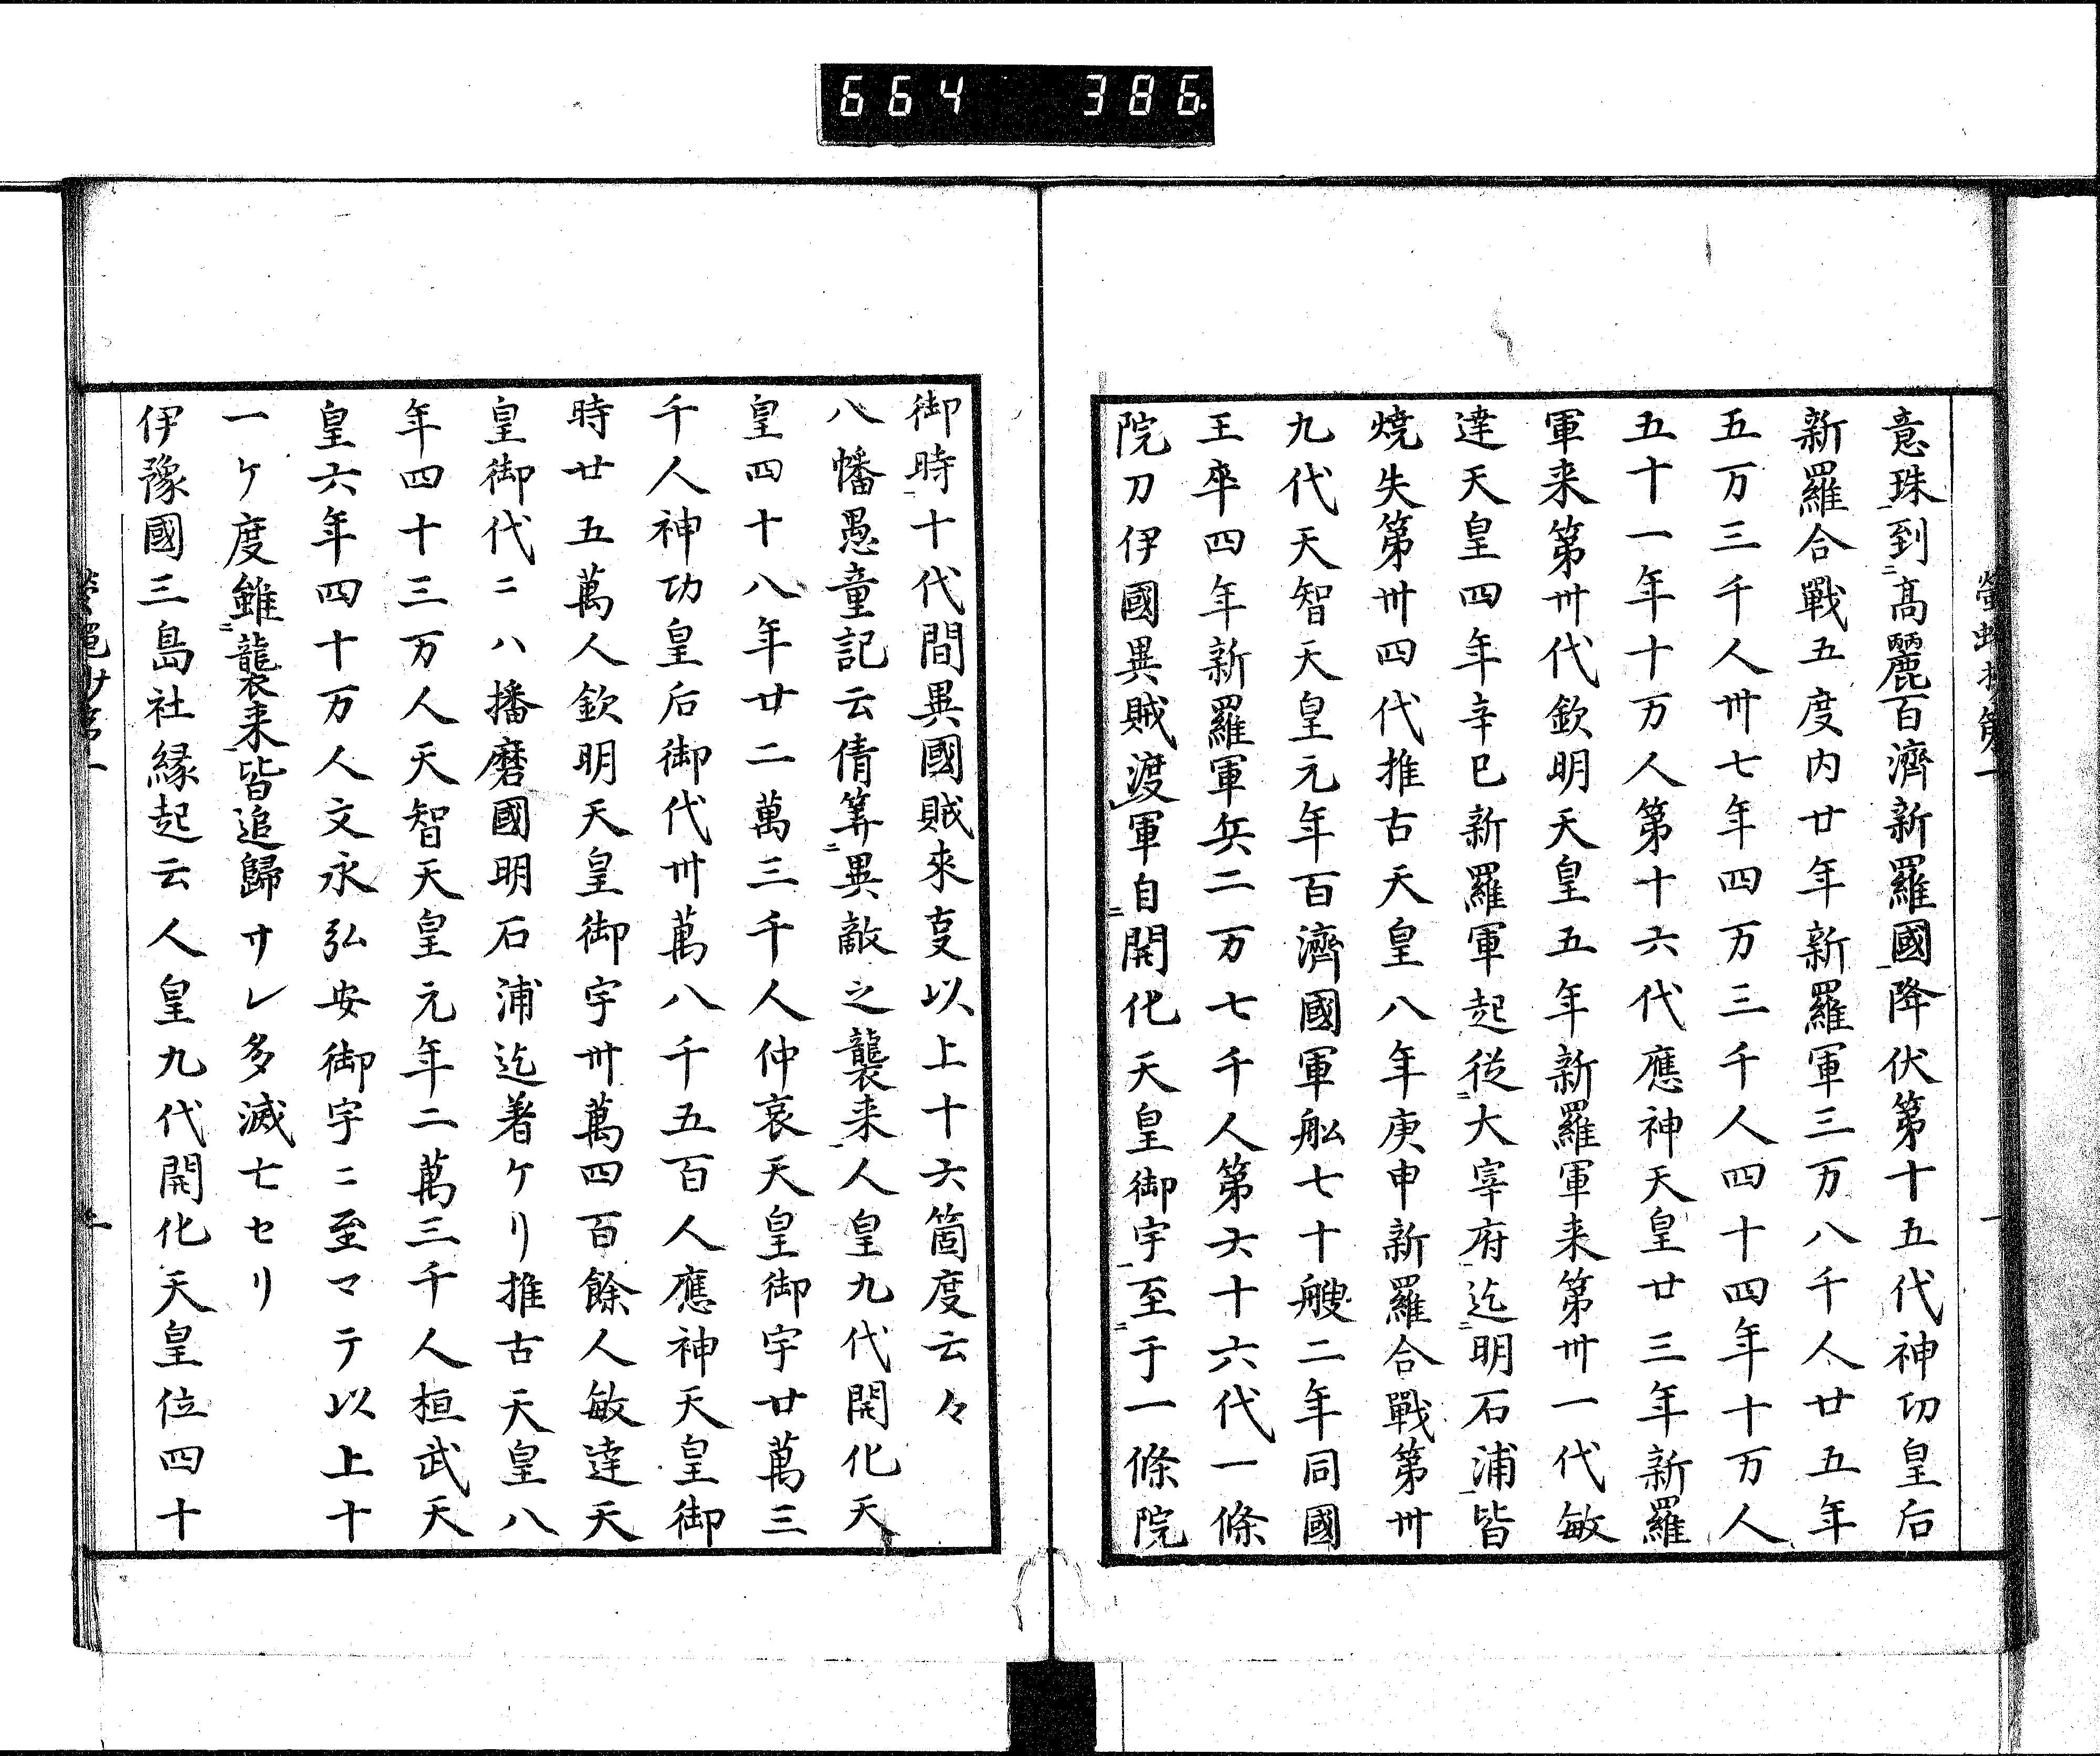 664 386
意珠到高麗百濟新羅國降伏第十五代神功皇后
新羅合戰五度内廿年新羅軍三万八千人廿五年
五万三千人卅七年四万三千人四十四年十万人
五十一年十万人第十六代應神天皇廿三年新羅
軍来第卅代欽明天皇五年新羅軍来第卅一代敏
達天皇四年辛巳新羅軍起従大宰府迄明石浦皆
焼失第卅四代推古天皇八年庚申新羅合戰第卅
九代天智天皇元年百濟國軍舩七十艘二年同國
王卒四年新羅軍兵二万七千人第六十六代一條
院刀伊國異賊渡軍自開化天皇御宇至于一條院
御時十代間異國賊來叓以上十六箇度云々
八幡愚童記云倩筭異敵之襲来人皇九代開化天
皇四十八年廿二萬三千人仲哀天皇御宇廿萬三
千人神功皇后御代卅萬八千五百人應神天皇御
時廿五萬人欽明天皇御宇卅萬四百餘人敏達天
皇御代ニハ播磨國明石浦迄着ケリ推古天皇八
年四十三万人天智天皇元年二萬三千人桓武天
皇六年四十万人文永弘安御宇ニ至マテ以上十
一ケ度雖襲来皆追歸サレ多滅亡セリ
伊豫國三島社縁起云人皇九代開化天皇位四十